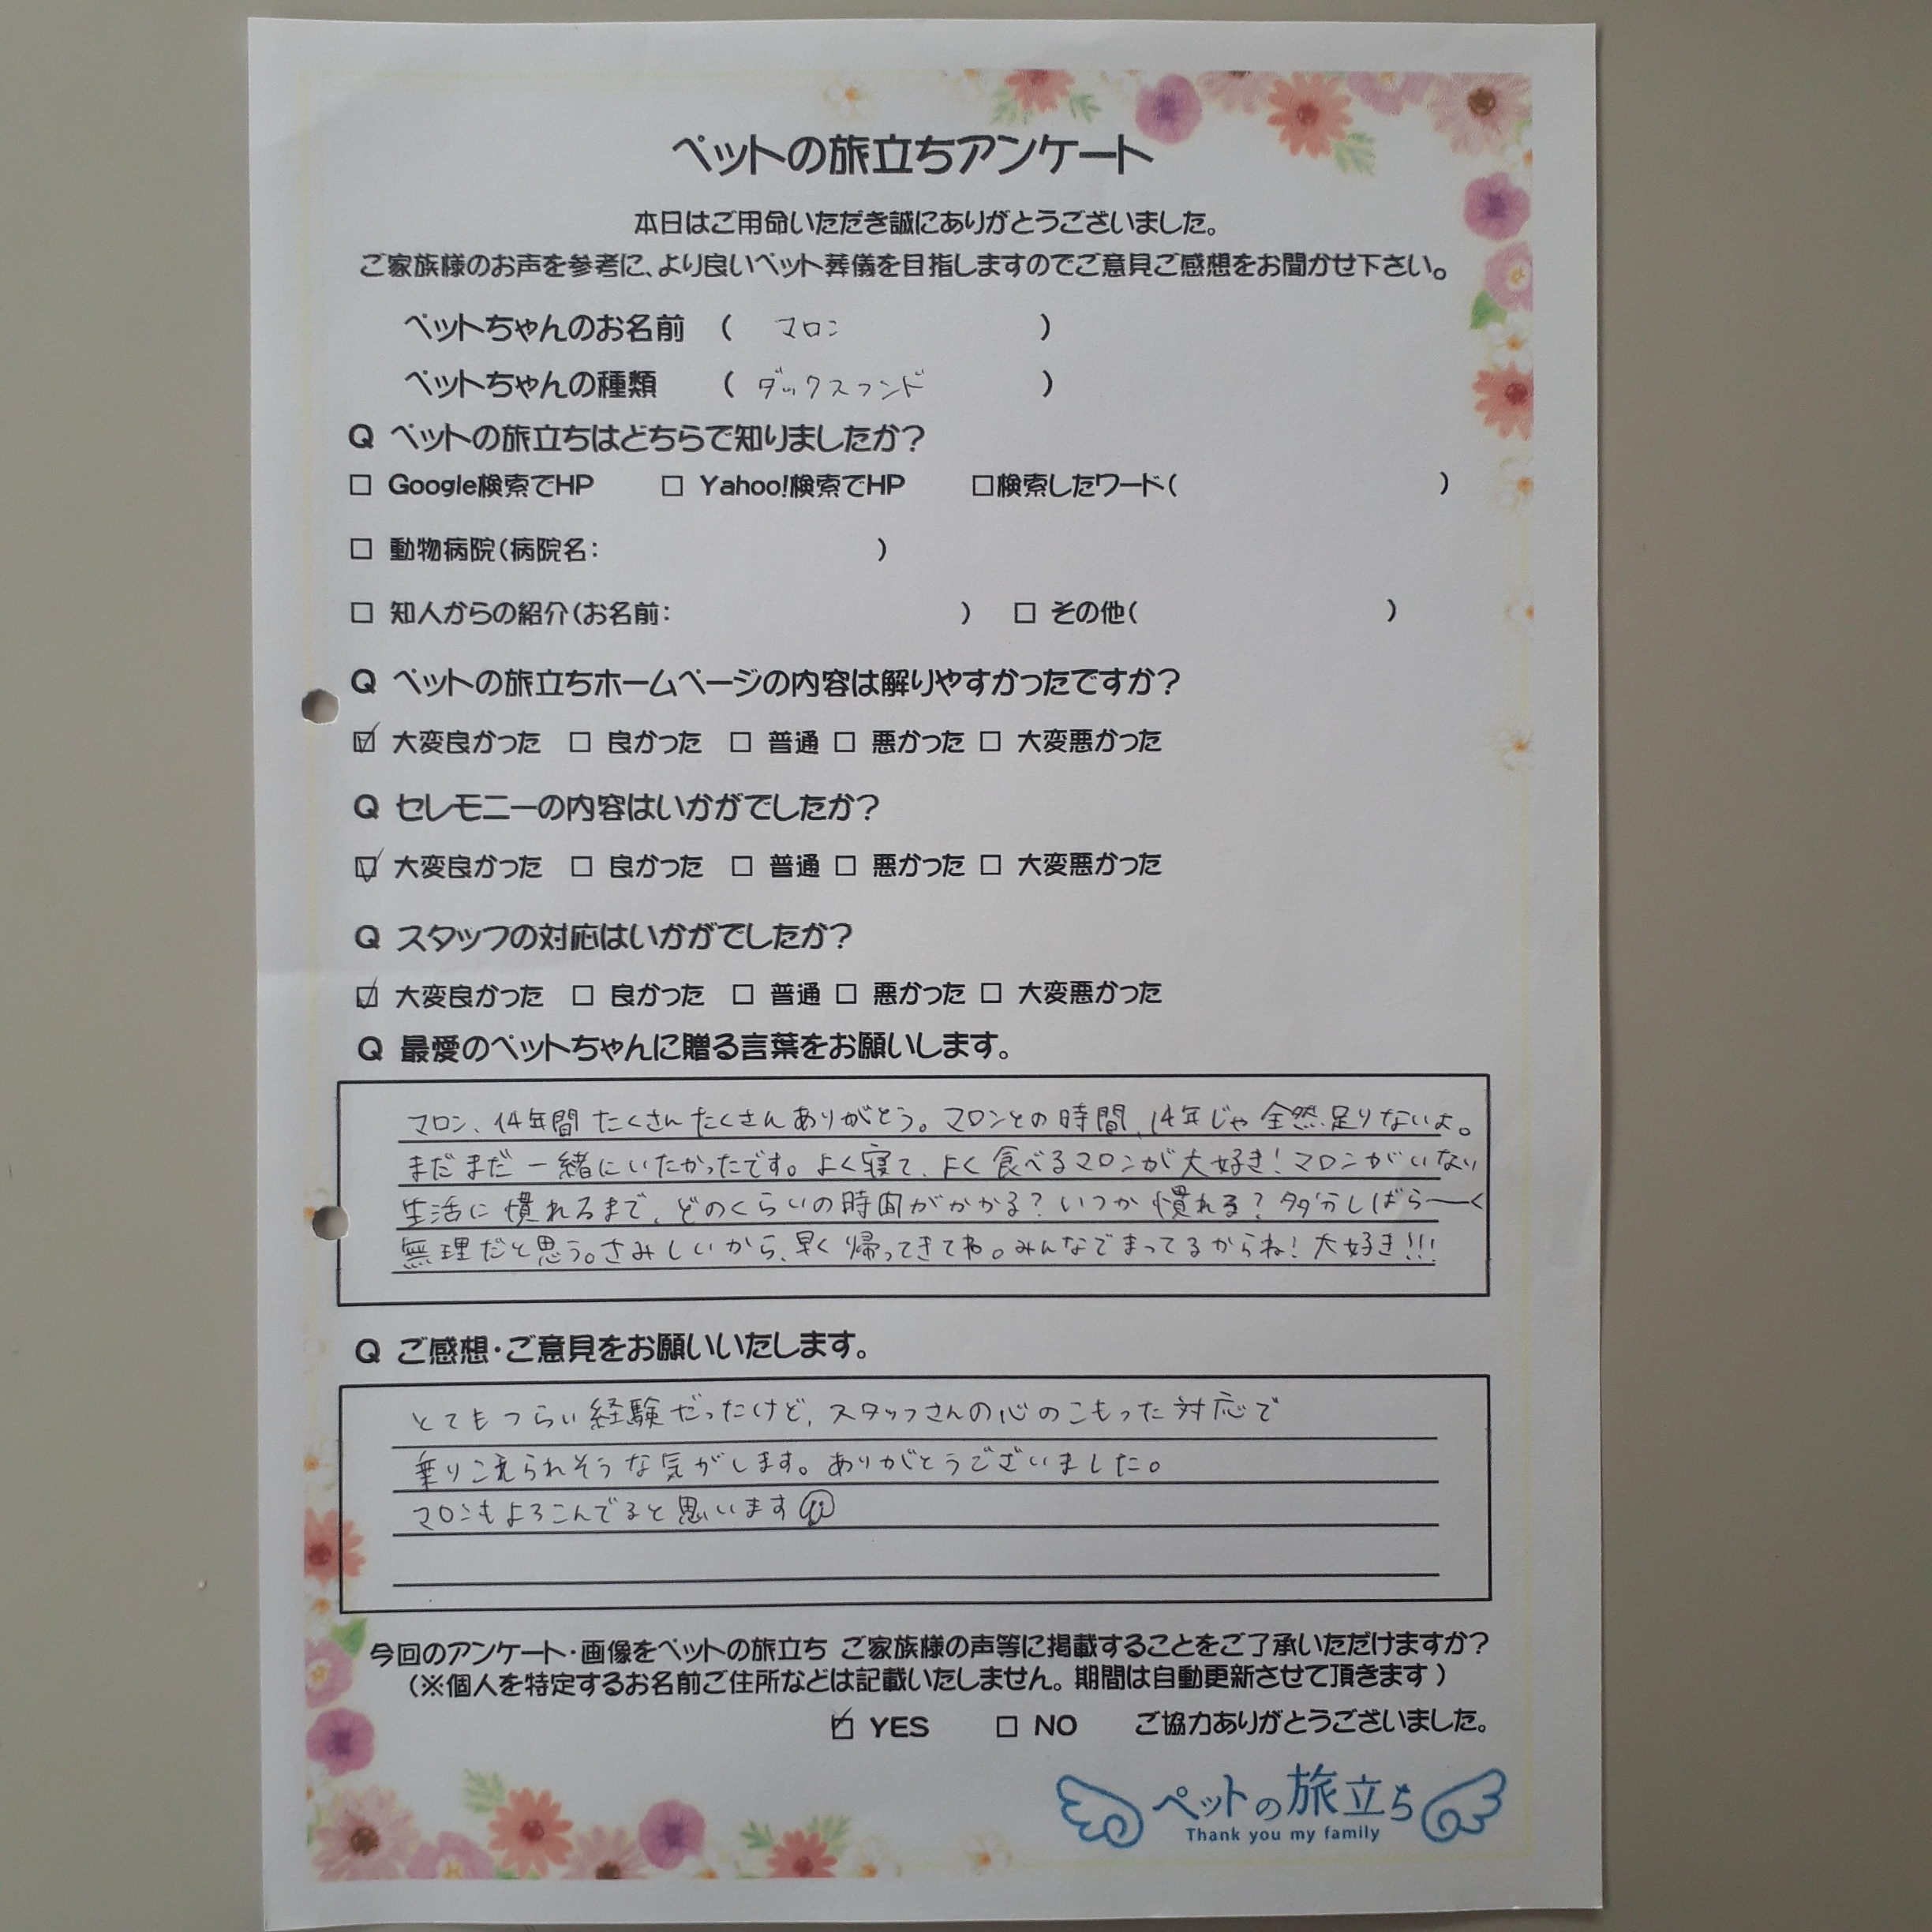 ペットの旅立ちアンケート
本日はご用命いただき誠にありがとうございました。
ご家族様のお声を参考に、より良いペット葬儀を目指しますのでご意見ご感想をお聞かせ下さい。
ペットちゃんのお名前 ( マロン )
ペットちゃんの種類 ( ダックスフンド )
Q ペットの旅立ちはどちらで知りましたか?
□ Google検索でHP □ Yahoo!検索でHP □検索したワード( )
□ 動物病院(病院名: )
□ 知人からの紹介(お名前: ) □ その他( )
Q ペットの旅立ちホームページの内容は解りやすかったですか?
☑ 大変良かった □ 良かった □ 普通 □ 悪かった □ 大変悪かった
Q セレモニーの内容はいかがでしたか?
☑ 大変良かった □ 良かった □ 普通 □ 悪かった □ 大変悪かった
Q スタッフの対応はいかがでしたか?
☑ 大変良かった □ 良かった □ 普通 □ 悪かった □ 大変悪かった
Q 最愛のペットちゃんに贈る言葉をお願いします。
マロン、14年間たくさんたくさんありがとう。マロンとの時間、14年じゃ全然足りないよ。
まだまだ一緒にいたかったです。よく寝て、よく食べるマロンが大好き!マロンがいない
生活に慣れるまで、どのくらいの時間がかかる?いつか慣れる?多分しばらーーく
無理だと思う。さみしいから、早く帰ってきてね。みんなでまってるからね!大好き!!!
Q ご感想・ご意見をお願いいたします。
とてもつらい経験だったけど、スタッフさんの心のこもった対応で
乗りこえられそうな気がします。ありがとうございました。
マロンもよろこんでると思います☺
今回のアンケート・画像をペットの旅立ち ご家族様の声等に掲載することをご了承いただけますか?
(※個人を特定するお名前ご住所などは記載いたしません。期間は自動更新させて頂きます)
☑ YES □ NO ご協力ありがとうございました。
ペットの旅立ち
Thank you my family